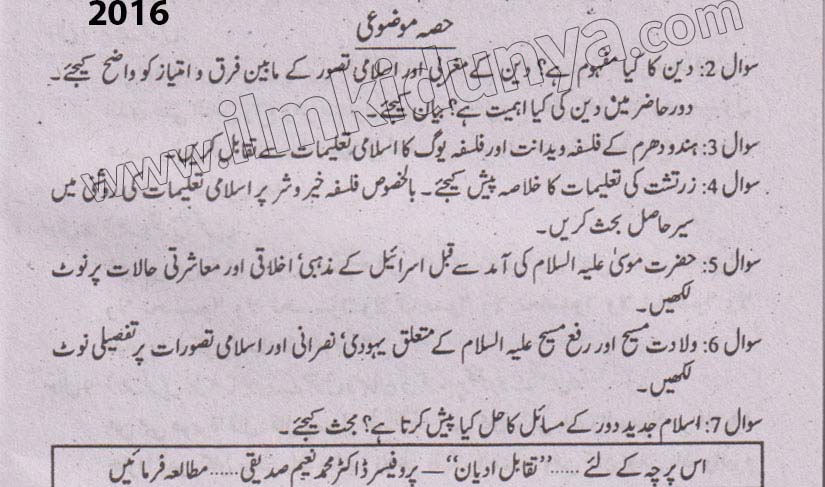 2016
حصہ موضوعی
www.ilmkidunya.com
سوال 2: دین کا کیا مفہوم ہے؟ دین کے مغربی اور اسلامی تصور کے مابین فرق و امتیاز کو واضح کیجئے۔
دور حاضر میں دین کی کیا اہمیت ہے؟ بیان کیجئے۔
سوال 3: ہندو دھرم کے فلسفہ ویدانت اور فلسفہ یوگ کا اسلامی تعلیمات سے تقابل کریں۔
سوال 4: زرتشت کی تعلیمات کا خلاصہ پیش کیجئے۔ بالخصوص فلسفہ خیر و شر پر اسلامی تعلیمات کی روشنی میں
سیر حاصل بحث کریں۔
سوال 5: حضرت موسیٰ علیہ السلام کی آمد سے قبل اسرائیل کے مذہبی' اخلاقی اور معاشرتی حالات پر نوٹ
لکھیں۔
سوال 6: ولادت مسیح اور رفع مسیح علیہ السلام کے متعلق یہودی' نصرانی اور اسلامی تصورات پر تفصیلی نوٹ
لکھیں۔
سوال 7: اسلام جدید دور کے مسائل کا حل کیا پیش کرتا ہے؟ بحث کیجئے۔
اس پرچہ کے لئے ..... "تقابل ادیان" — پروفیسر ڈاکٹر محمد نعیم صدیقی ..... مطالعہ فرمائیں